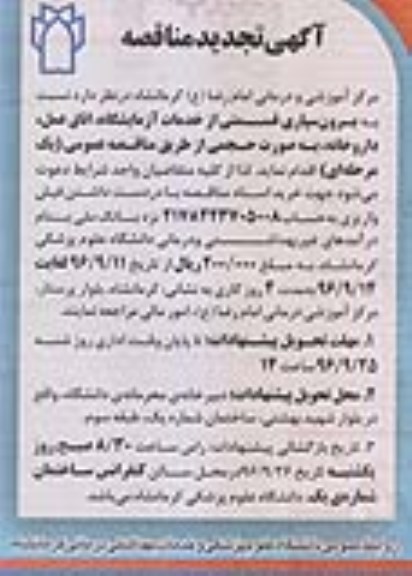 آگهی تجدید مناقصه
مرکز آموزشی و درمانی امام رضا (ع) کرمانشاه درنظر دارد نسبت
به برون‌سپاری قسمتی از خدمات آزمایشگاه، اتاق عمل،
داروخانه، به صورت حجمی از طریق مناقصه عمومی (یک
مرحله‌ای) اقدام نماید. لذا از کلیه متقاضیان واجد شرایط دعوت
می‌شود جهت خرید اسناد مناقصه با در دست داشتن فیش
واریزی به حساب نزد بانک ملی بنام
درآمدهای غیربهداشتی ودرمانی دانشگاه علوم پزشکی
کرمانشاه، به مبلغ ۲۰۰/۰۰۰ ریال از تاریخ ۹۶/۹/۱۱ لغایت
۹۶/۹/۱۴ بمدت ۴ روز کاری به نشانی: کرمانشاه، بلوار پرستار،
مرکز آموزشی درمانی امام رضا (ع)، امور مالی مراجعه نمایند.
۱. مهلت تحویل پیشنهادات: تا پایان وقت اداری روز شنبه
۹۶/۹/۲۵ ساعت ۱۴
۲. محل تحویل پیشنهادات: دبیرخانه‌ی محرمانه‌ی دانشگاه، واقع
در بلوار شهید بهشتی، ساختمان شماره یک، طبقه سوم
۳. تاریخ بازگشائی پیشنهادات: راس ساعت ۸/۳۰ صبح روز
یکشنبه تاریخ ۹۶/۹/۲۶ در محل سالن کنفرانس ساختمان
شماره‌ی یک، دانشگاه علوم پزشکی کرمانشاه می‌باشد.
روابط عمومی دانشگاه علوم پزشکی و خدمات بهداشتی درمانی کرمانشاه